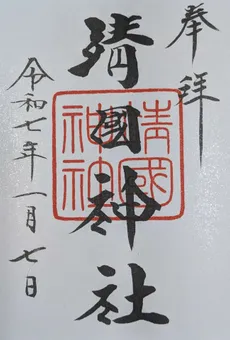 奉拝
靖國神社
靖國
神社
令和七年一月七日